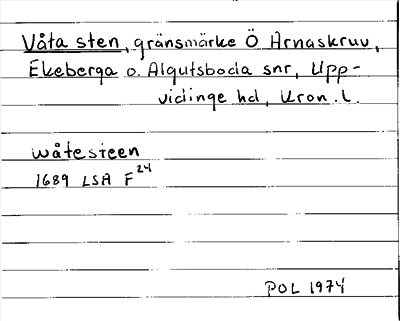 Våta sten, gränsmärke Ö Arnaskruv,
Ekeberga o. Algutsboda snr, Upp-
vidinge hd, Kron. l.
wåtesteen
1689 LSA F24
POL 1974